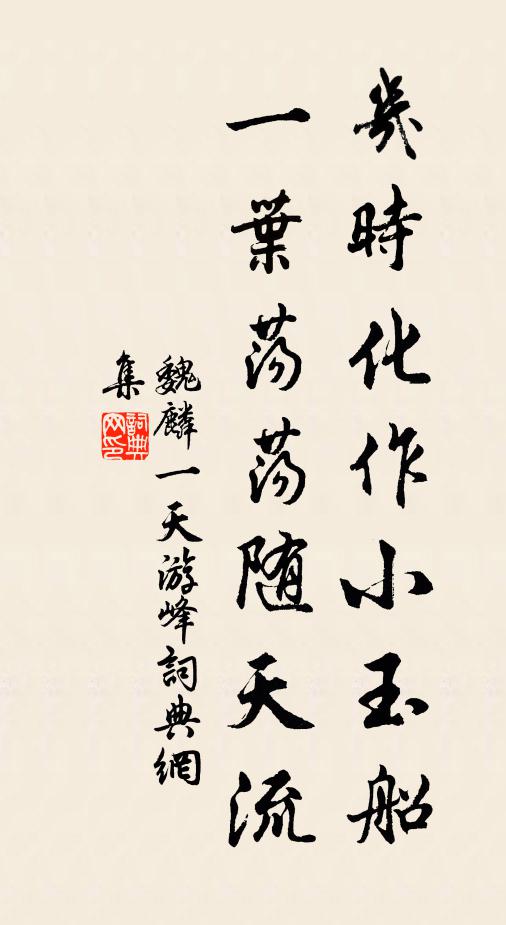 幾時化作小玉船
一葉蕩蕩随天流
魏麟一天游峰詞典網
集
詞典
网印